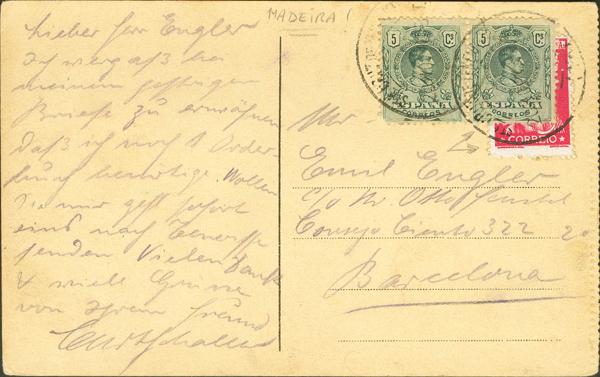 MADEIRA
lieber Herr Engler
Ich vergaß bei
meinem gestrigen
Briefe zu erwähnen
daß ich noch 1
benötige. Wollen
Sie mir gefl sofort
eins nach Teneriffe
senden Vielen Dank
& viele Grüsse
von Ihrem Freund
5 Cs 5 Cs
ESPAÑA ESPAÑA
CORREOS CORREOS
CORREIO
Emil Engler
c/o Hr. Otto
Consejo Ciento 322 20
Barcelona